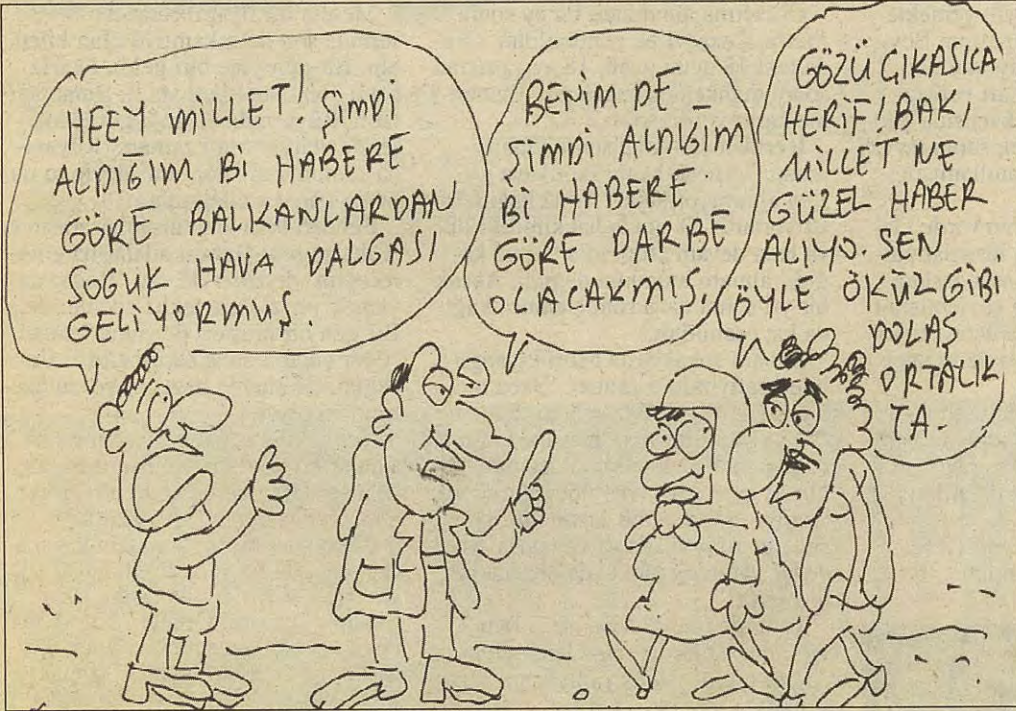 HEEY MİLLET! ŞİMDİ
ALDIĞIM Bİ HABERE
GÖRE BALKANLARDAN
SOĞUK HAVA DALGASI
GELİYORMUŞ.
BENİM DE
ŞİMDİ ALDIĞIM
Bİ HABERE
GÖRE DARBE
OLACAKMIŞ.
GÖZÜ ÇIKASICA
HERİF! BAK,
MİLLET NE
GÜZEL HABER
ALIYO. SEN
ÖYLE ÖKÜZ GİBİ
DOLAŞ
ORTALIK
TA.